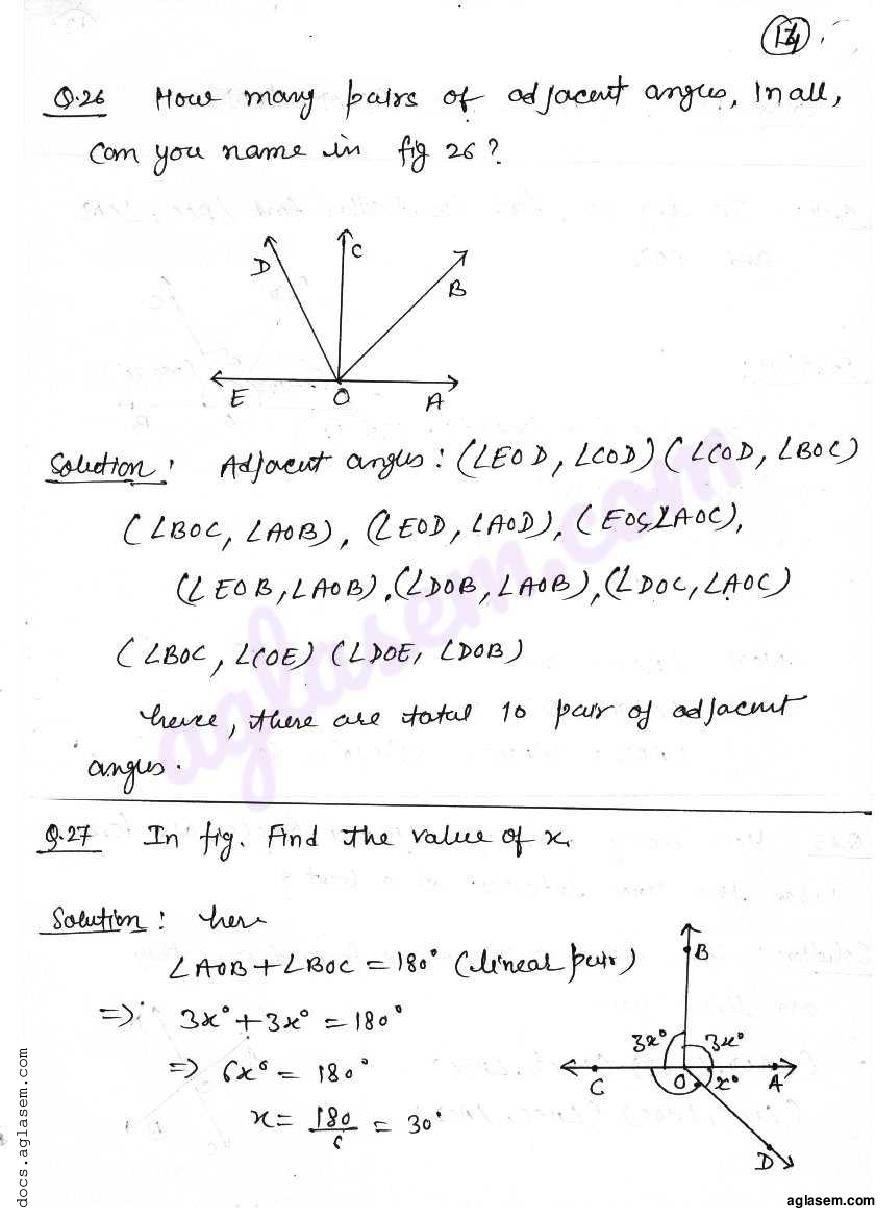 14
Q.26 How many pairs of adjacent angles, In all,
Can you name in fig 26?
D C B
E O A
Solution: Adjacent angles: (∠EOD, ∠COD) (∠COD, ∠BOC)
(∠BOC, ∠AOB), (∠EOD, ∠AOD), (EOC, ∠AOC),
(∠EOB, ∠AOB), (∠DOB, ∠AOB), (∠DOC, ∠AOC)
(∠BOC, ∠COE) (∠DOE, ∠DOB)
hence, there are total 10 pair of adjacent
angles.
Q.27 In fig. Find the value of x.
Solution: here
∠AOB + ∠BOC = 180° (linear pair)
⇒ 3x° + 3x° = 180°
⇒ 6x° = 180°
x = 180/6 = 30°
B
3x° 3x°
C O x° A
D
aglasem.com
docs.aglasem.com
aglasem.com